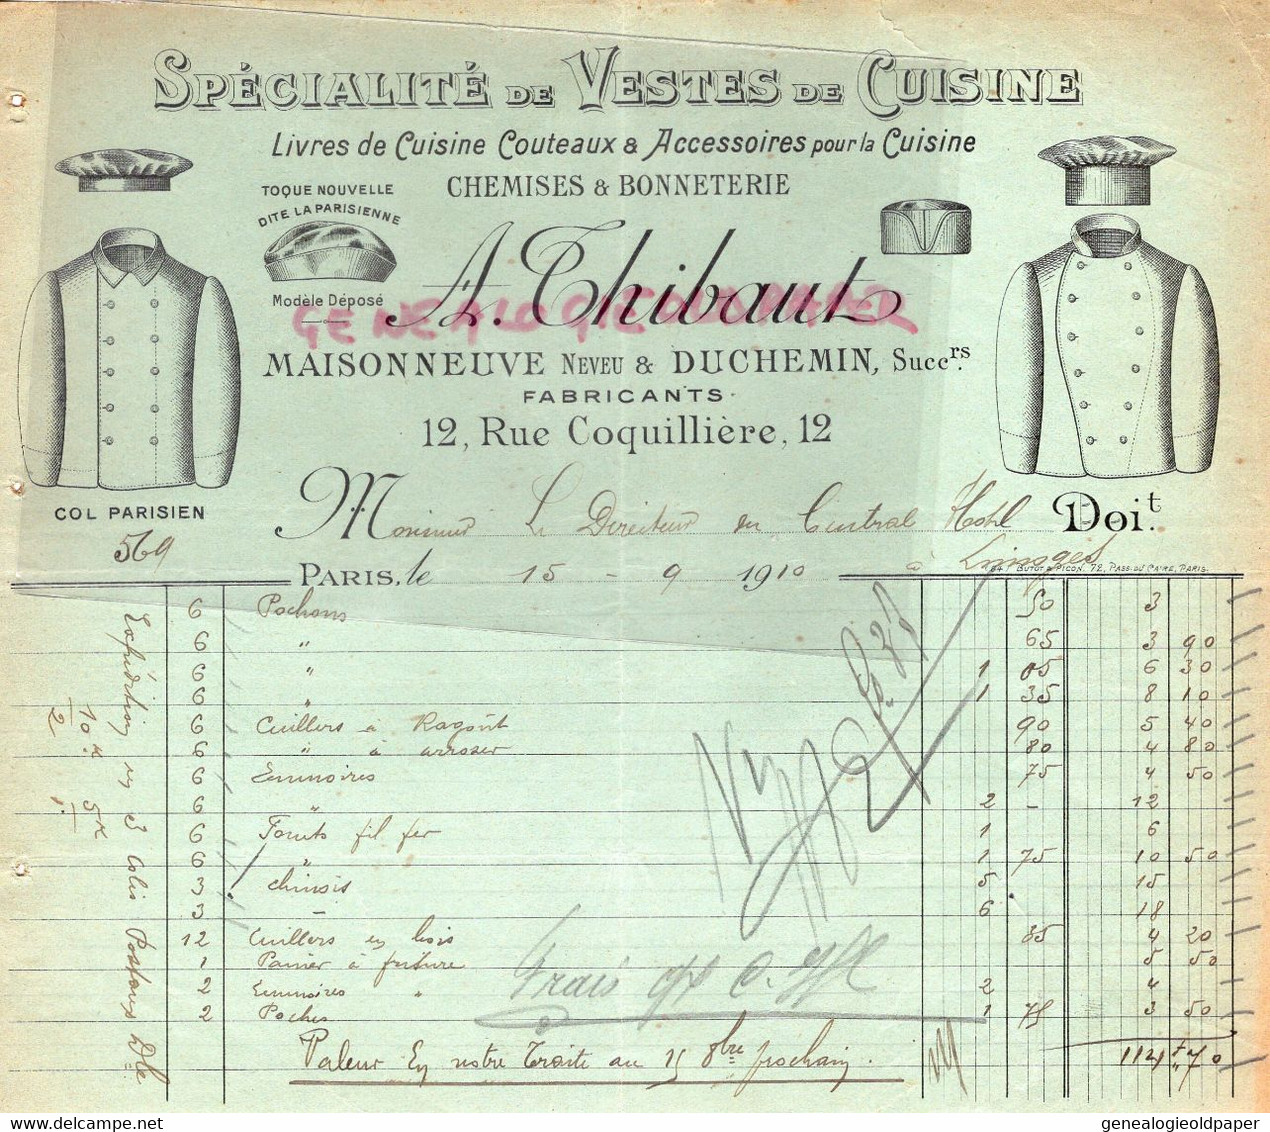 SPÉCIALITÉ DE VESTES DE CUISINE
Livres de Cuisine Couteaux & Accessoires pour la Cuisine
CHEMISES & BONNETERIE
TOQUE NOUVELLE
DITE LA PARISIENNE
Modèle Déposé
A. Thibaut
GENEALOGIEOLDPAPER
MAISONNEUVE NEVEU & DUCHEMIN, Succrs.
FABRICANTS
12, Rue Coquillière, 12
COL PARISIEN
569
Monsieur Le Directeur du Central Hotel Doit.
à Limoges
PARIS, le 15 - 9 1910
BUTUT & PICON. 72, PASS. DU CAIRE, PARIS.
6 Pochons 50 3
6 " 65 3 90
6 " 1 05 6 30
6 " 1 35 8 10
6 Cuillers à Ragoût 90 5 40
6 " à arroser 80 4 80
6 Ecumoires 75 4 50
6 " 2 - 12
6 Fouets fil fer 1 6
6 " 1 75 10 50
3 Chinois 5 15
3 - 6 18
12 Cuillers en bois 35 4 20
1 Panier à friture 5 50
2 Ecumoires " 2 4
2 Poches 1 75 3 50
Valeur En notre Traite au 15 8bre prochain. 114 70
Expédition en 3 Colis Postaux Dle
10 k 5 k
2 1
Frais
genealogieoldpaper